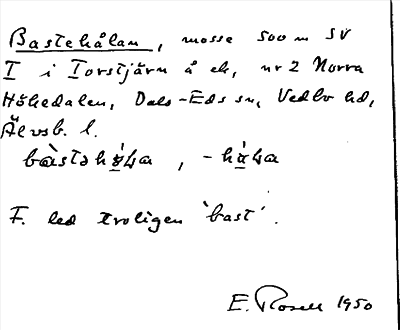 Bastehålan, mosse 500 m SV
I i Torstjärn å ek, nr 2 Norra
Höhedalen, Dals-Eds sn, Vedbo hd,
Älvsb. l.
F. led troligen 'bast'.
E. Rosell 1950